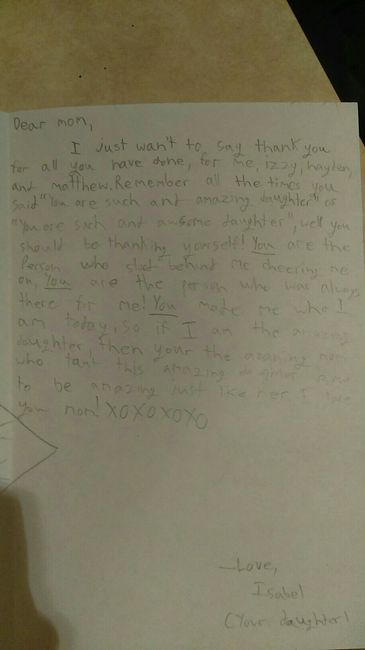 Dear mom,
I just wan't to say thank you
for all you have done, for me, izzy, hayden,
and matthew. Remember all the times you
said "You are such and amazing daughter" or
"You are such and awsome daughter", well you
should be thanking yourself! You are the
Person who stod behind me cheering me
on, You are the person who was always
there for me! You made me who I
am today, so if I am the amazing
daughter then your the amazing mom
who this amazing
to be amazing just like her. I love
you mom! XOXOXOXO
-Love,
Isabel
(Your daughter)